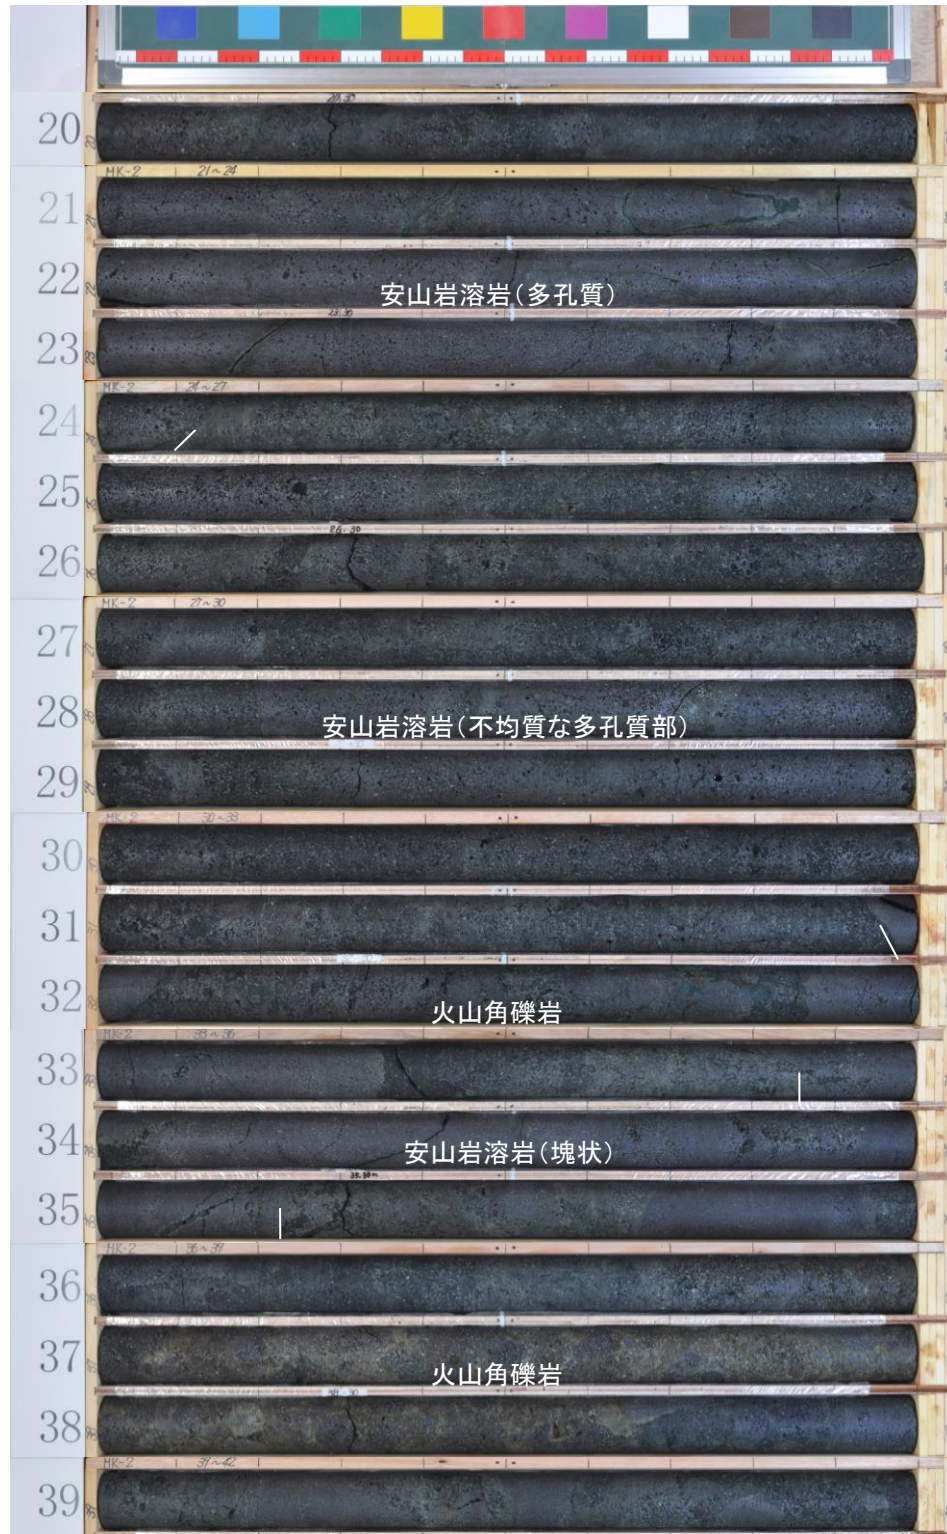 20
MK-2 21~24
21
22
安山岩溶岩（多孔質）
23.30
23
MK-2 24~27
24
25
26.30
26
MK-2 27~30
27
28
安山岩溶岩（不均質な多孔質部）
29
MK-2 30~33
30
31
32
火山角礫岩
MK-2 33~36
33
34
安山岩溶岩（塊状）
35
MK-2 36~39
36
37
火山角礫岩
38
MK-2 39~42
39